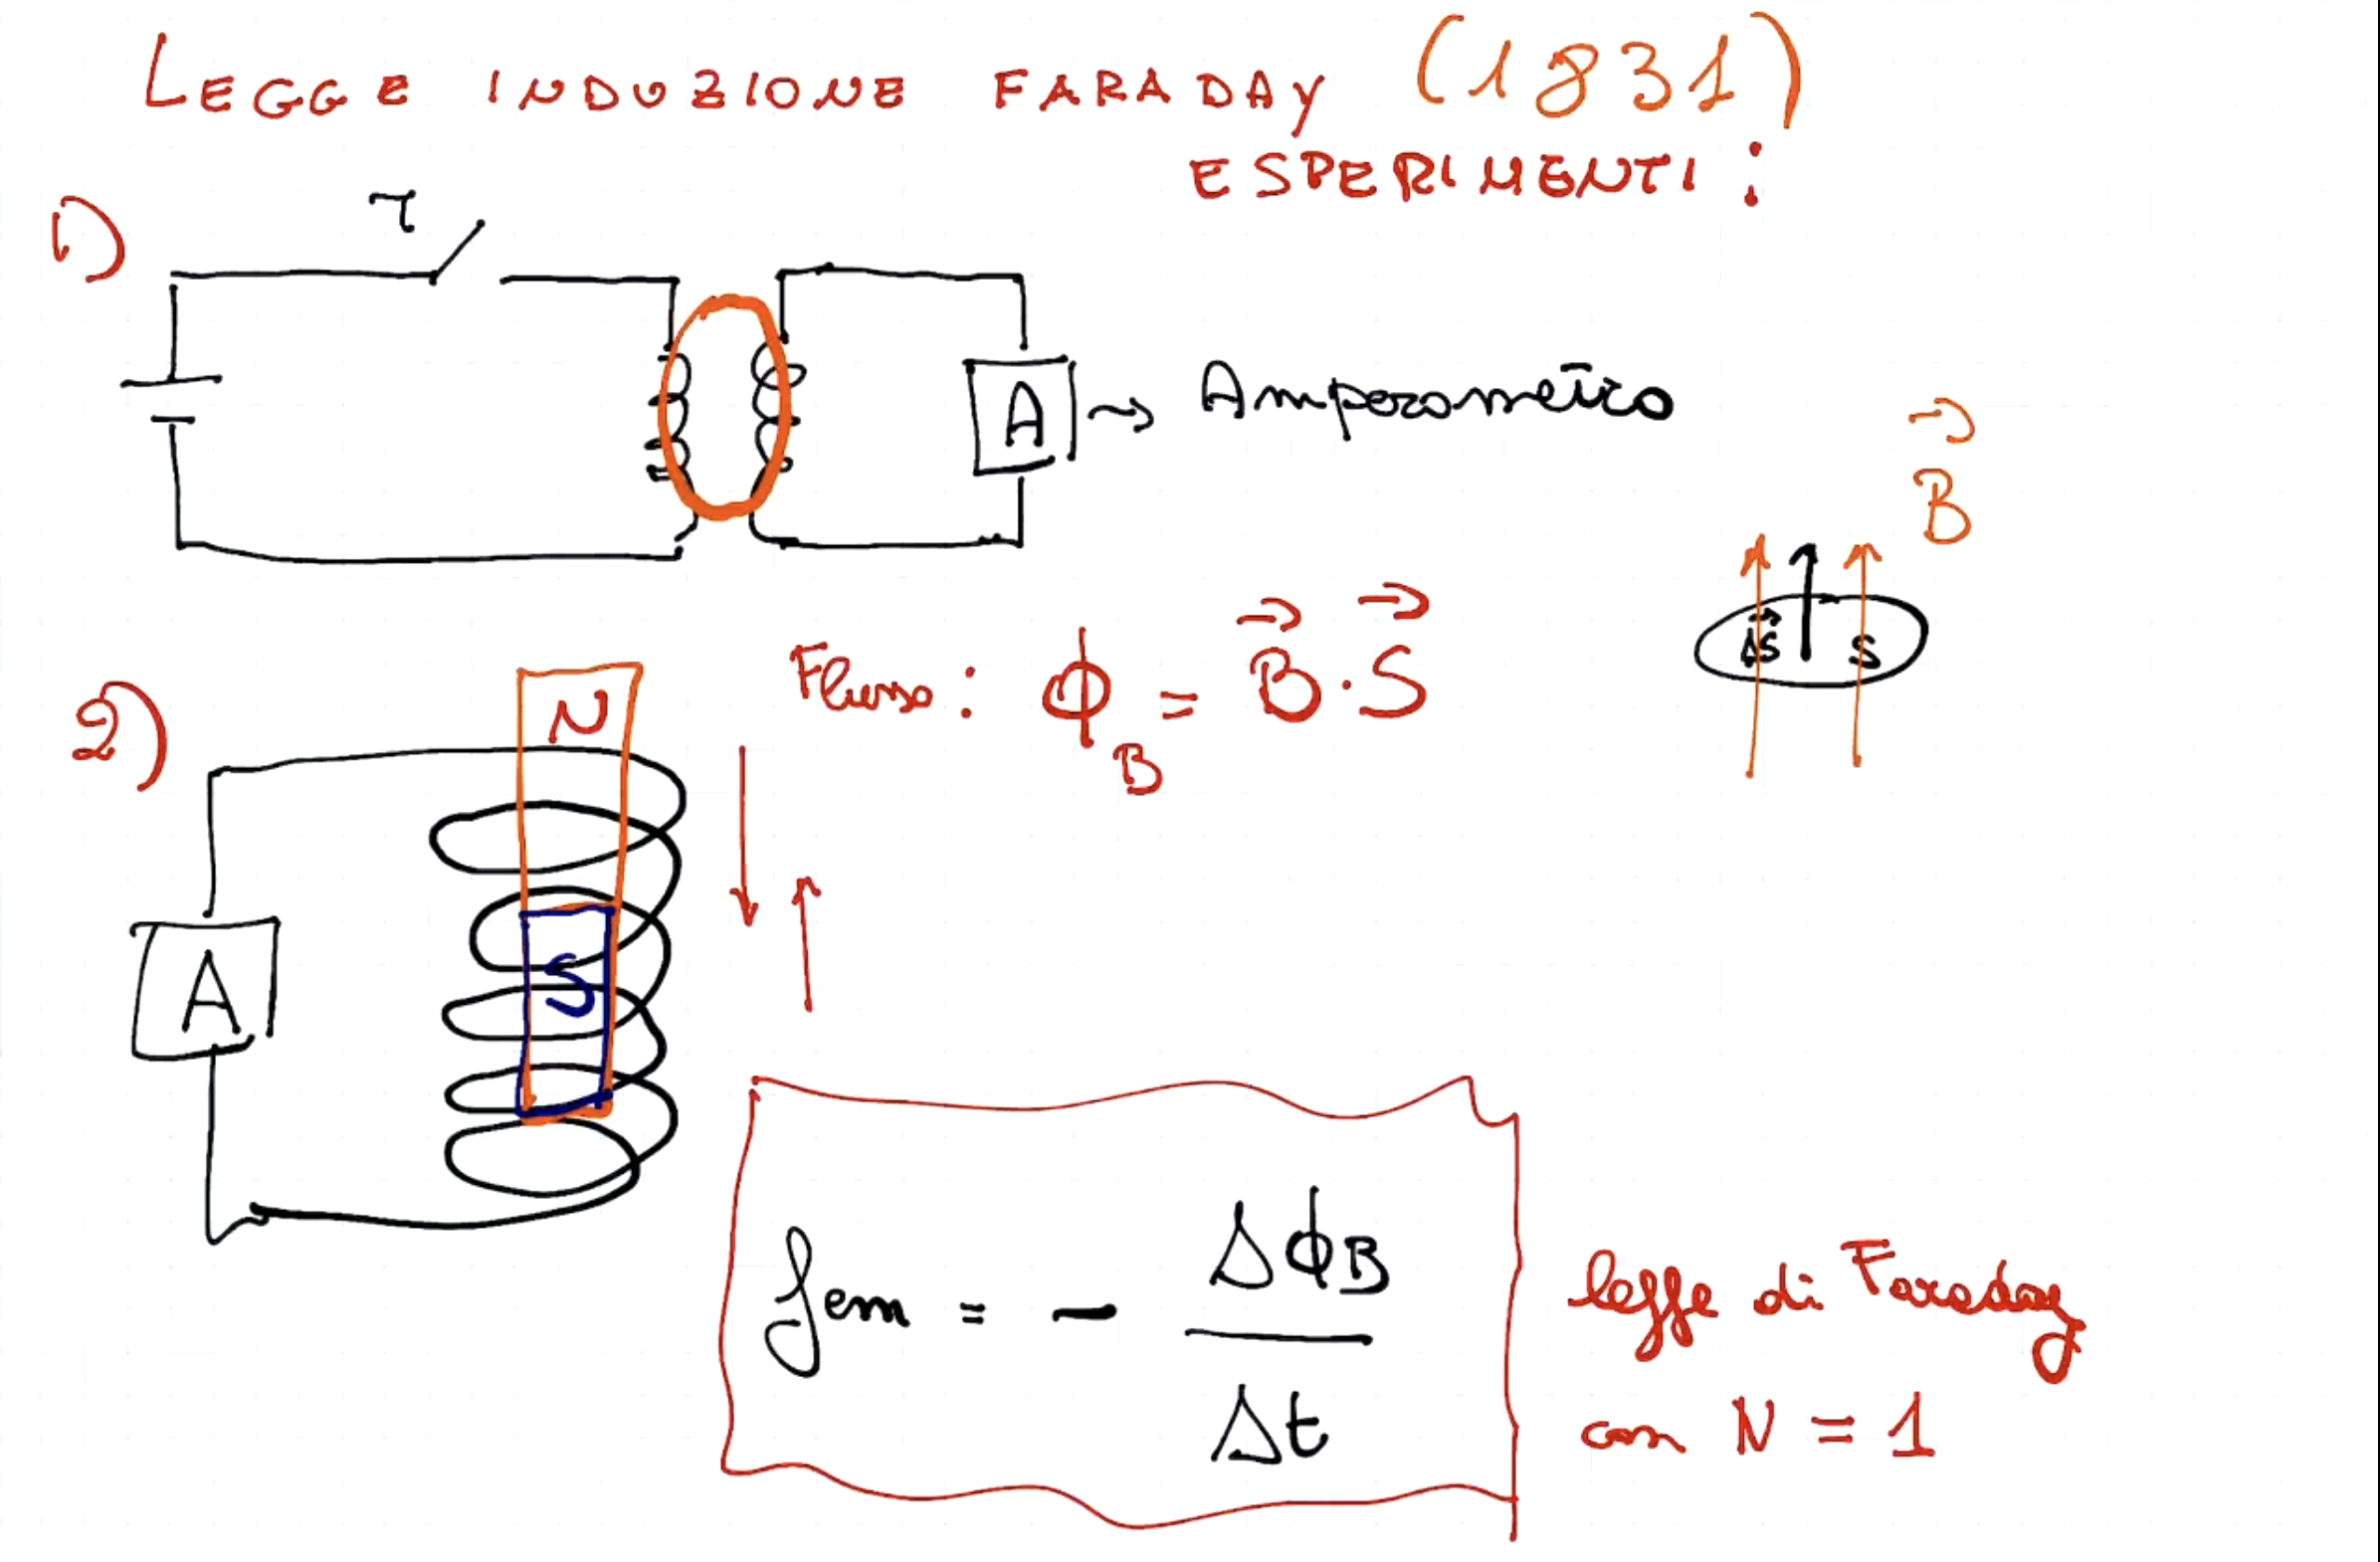 LEGGE INDUZIONE FARADAY (1831)
ESPERIMENTI:
1)
τ
A → Amperometro
B⃗
ΔS⃗ S
Flusso: ϕ_B = B⃗ · S⃗
2)
N
S
A
fem = - Δϕ_B / Δt
legge di Faraday
con N = 1